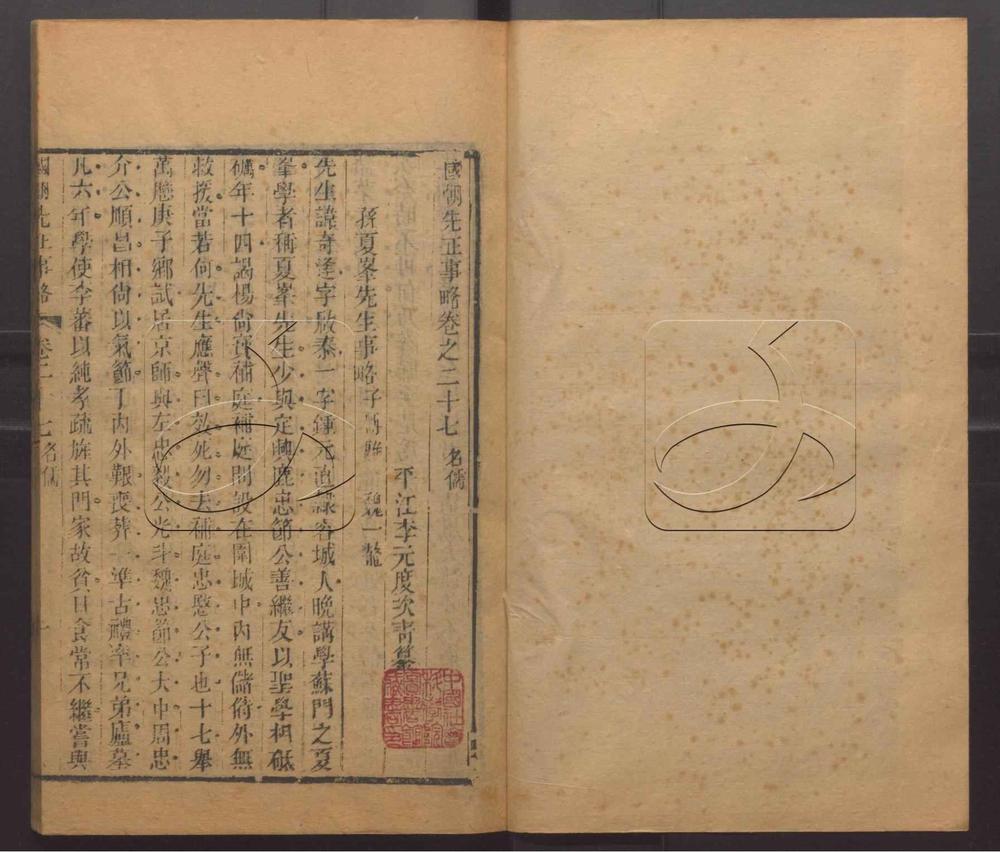 國朝先正事略卷之二十七 名儒
平江李元度次青纂
孫夏峯先生事略 子博雅 魏一鼇
先生諱奇逢字啟泰一字鍾元直隸容城人晚講學蘇門之夏
峯學者稱夏峯先生少與定興鹿忠節公善繼友以聖學相砥
礪年十四謁楊尙寶補庭補庭問設在圍城中內無儲偫外無
救援當若何先生應聲曰效死勿去補庭忠愍公子也十七舉
萬應庚子鄉試居京師與左忠毅公光斗魏忠節公大中周忠
介公順昌相尙以氣節丁內外艱喪葬一準古禮率兄弟廬墓
凡六年學使李蕃以純孝疏旌其門家故貧日食常不繼嘗與
國朝先正事略 卷二十七 名儒 一